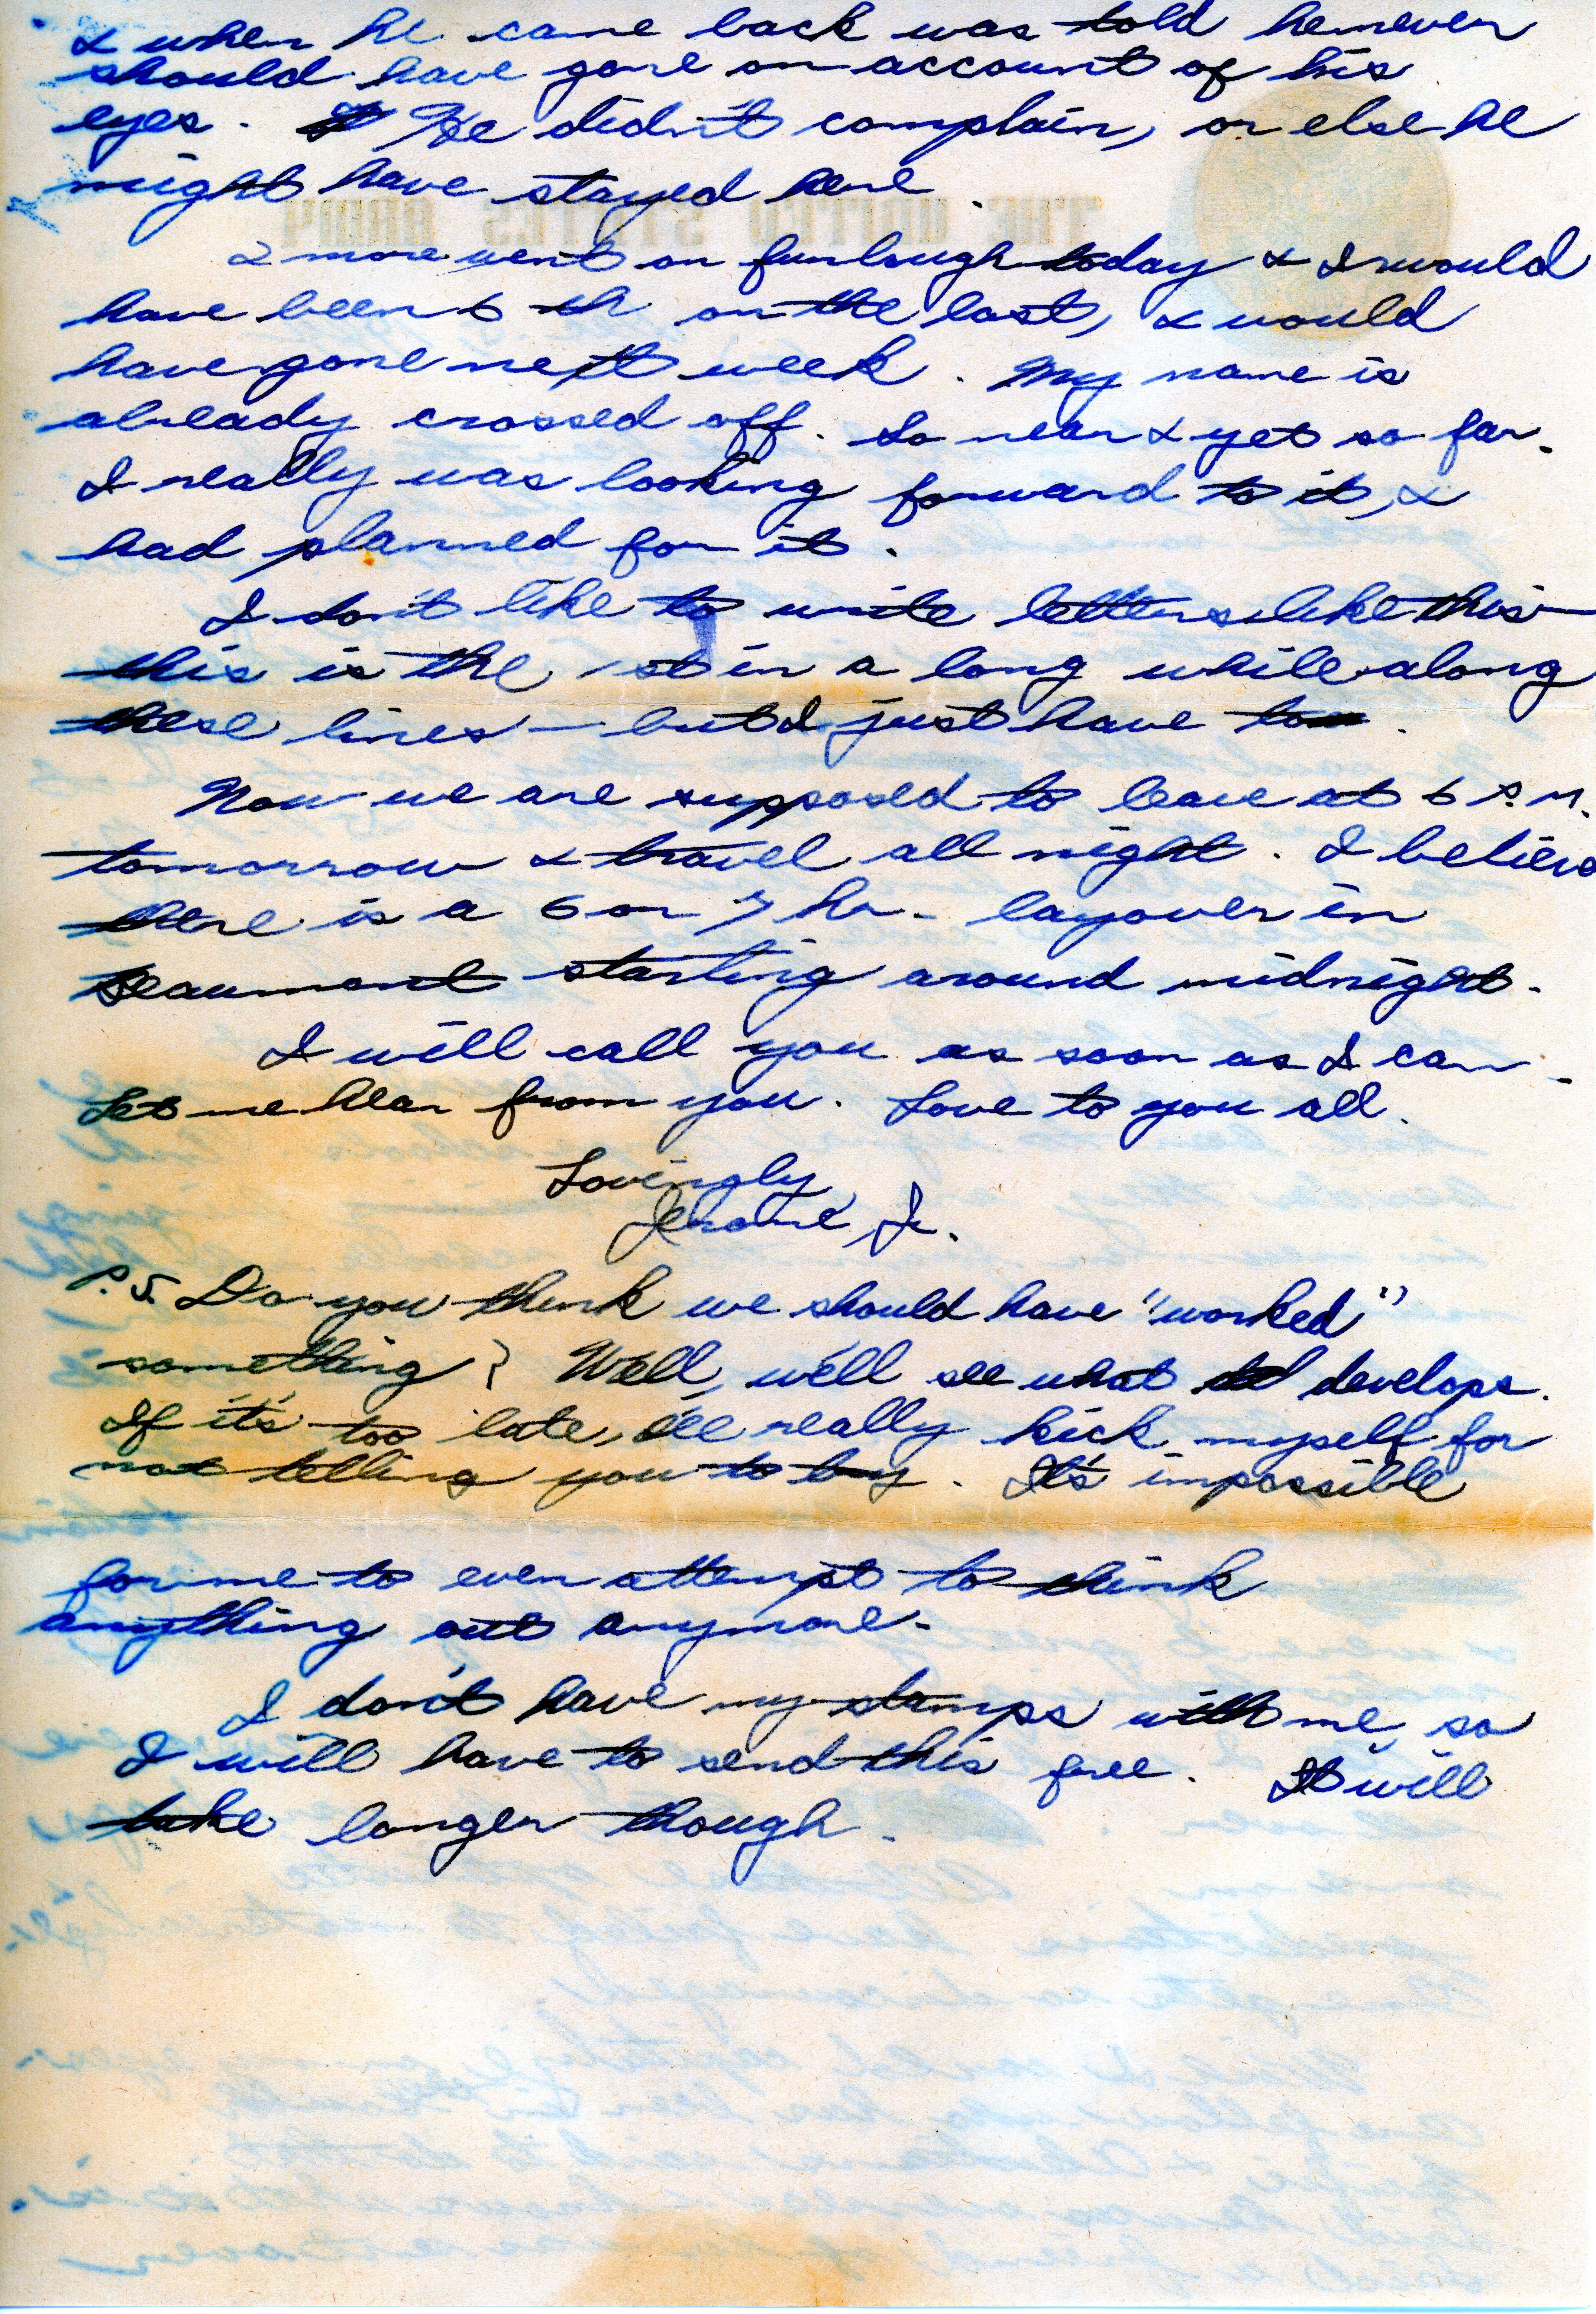 & when he came back was told he never
should have gone on account of his
eyes. He didn't complain, or else he
might have stayed here.
THE UNITED STATES ARMY
2 more went on furlough today & I would
have been 6 th on the last, & would
have gone next week. My name is
already crossed off. So near & yet so far.
I really was looking forward to it, &
had planned for it.
I don't like to write letters like this —
this is the 1st in a long while along
these lines — but I just have to.
Now we are supposed to leave at 6 P.M.
tomorrow & travel all night. I believe
there is a 6 or 7 hr. layover in
Beaumont starting around midnight.
I will call you as soon as I can.
Let me hear from you. Love to you all.
Lovingly
Jerome Jr.
P.S. Do you think we should have "worked"
something? Well, we'll see what develops.
If it's too late, I'll really kick myself for
not telling you to try. It's impossible
for me to even attempt to think
anything out anymore.
I don't have my stamps with me, so
I will have to send this free. It will
take longer though.